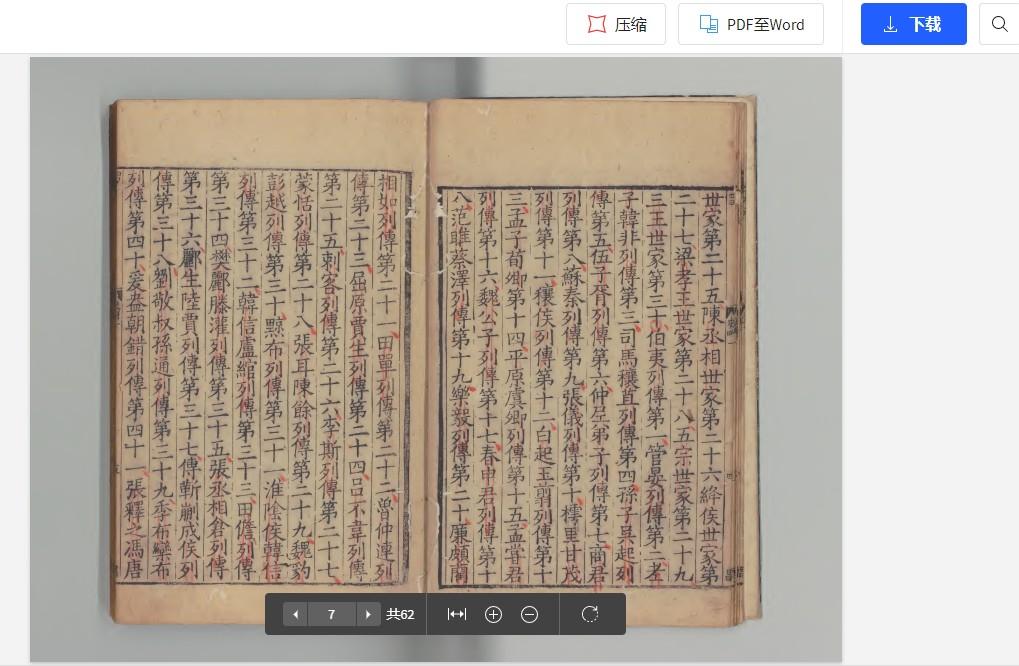 压缩
PDF至Word
下载
世家第二十五陳丞相世家第二十六絳侯世家第
二十七梁孝王世家第二十八五宗世家第二十九
三王世家第三十伯夷列傳第一管晏列傳第二老
子韓非列傳第三司馬穰苴列傳第四孫子吳起列
傳第五伍子胥列傳第六仲尼弟子列傳第七商君
列傳第八蘇秦列傳第九張儀列傳第十樗里甘茂
列傳第十一穰侯列傳第十二白起王翦列傳第十
三孟子荀卿第十四平原虞卿列傳第十五孟嘗君
列傳第十六魏公子列傳第十七春申君列傳第十
八范雎蔡澤列傳第十九樂毅列傳第二十廉頗藺
相如列傳第二十一田單列傳第二十二魯仲連列
傳第二十三屈原賈生列傳第二十四呂不韋列傳
第二十五刺客列傳第二十六李斯列傳第二十七
蒙恬列傳第二十八張耳陳餘列傳第二十九魏豹
彭越列傳第三十黥布列傳第三十一淮陰侯韓信
列傳第三十二韓信盧綰列傳第三十三田儋列傳
第三十四樊酈滕灌列傳第三十五張丞相倉列傳
第三十六酈生陸賈列傳第三十七傅靳蒯成侯列
傳第三十八劉敬叔孫通列傳第三十九季布欒布
列傳第四十爰盎朝錯列傳第四十一張釋之馮唐
7
共62